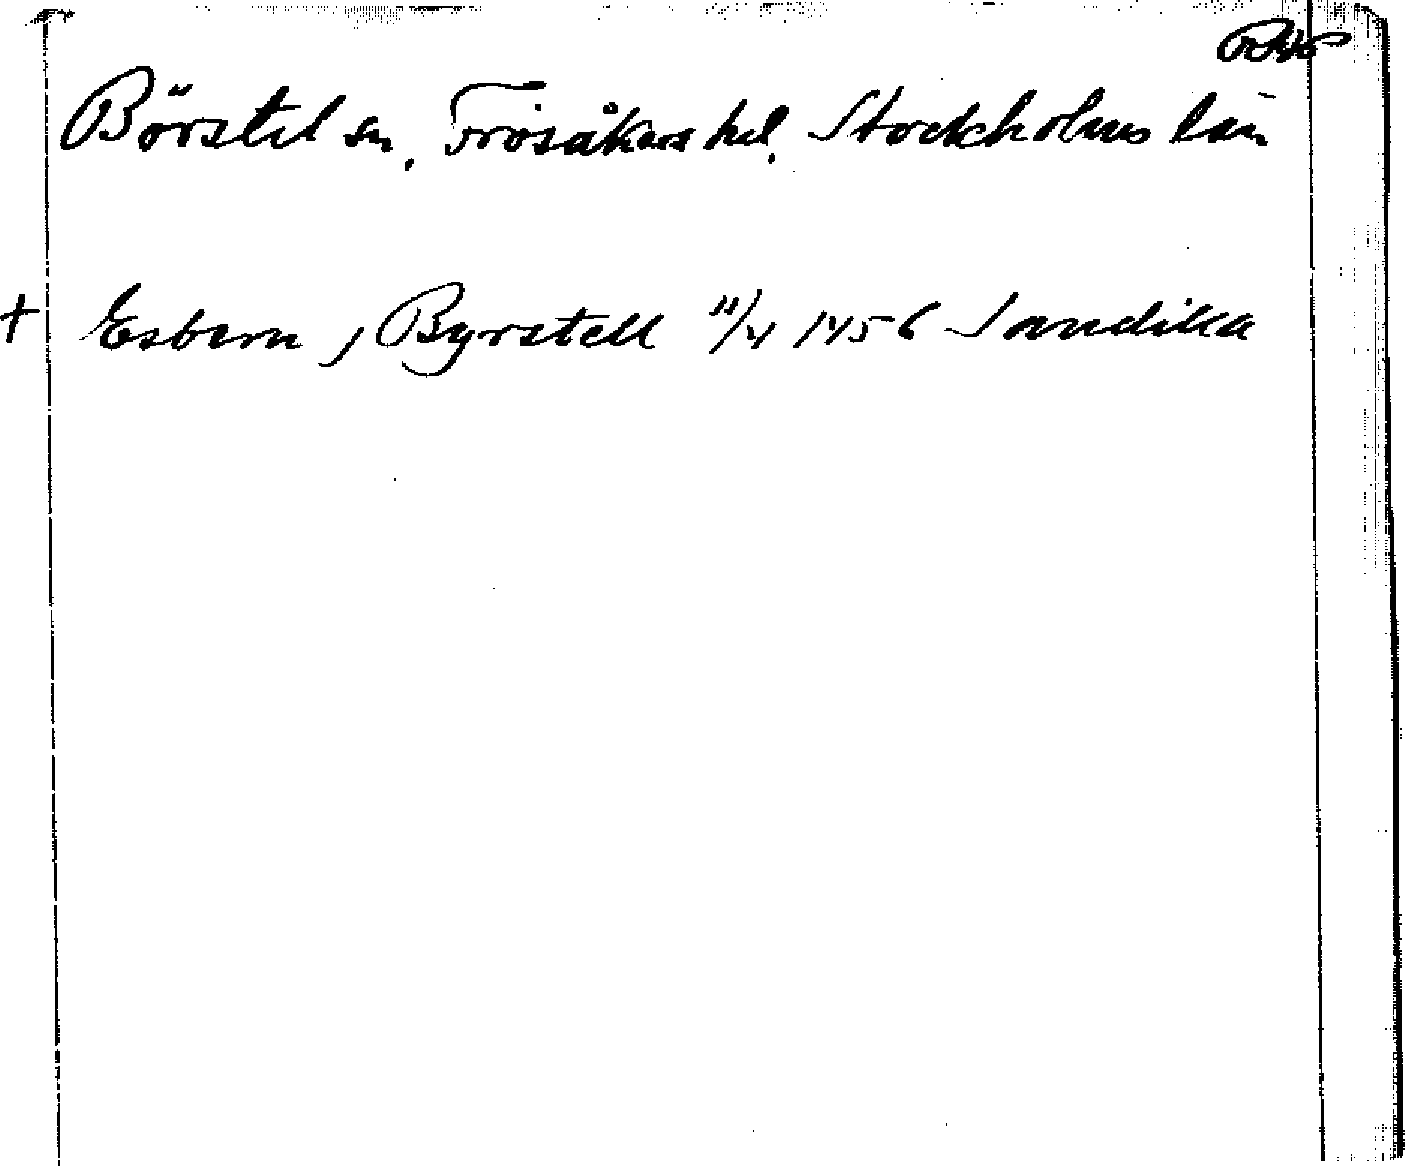 Börstel sn, Frösåkers hd, Stockholms län
+ Esbern j Byrstell 11/4 1456 Sandika